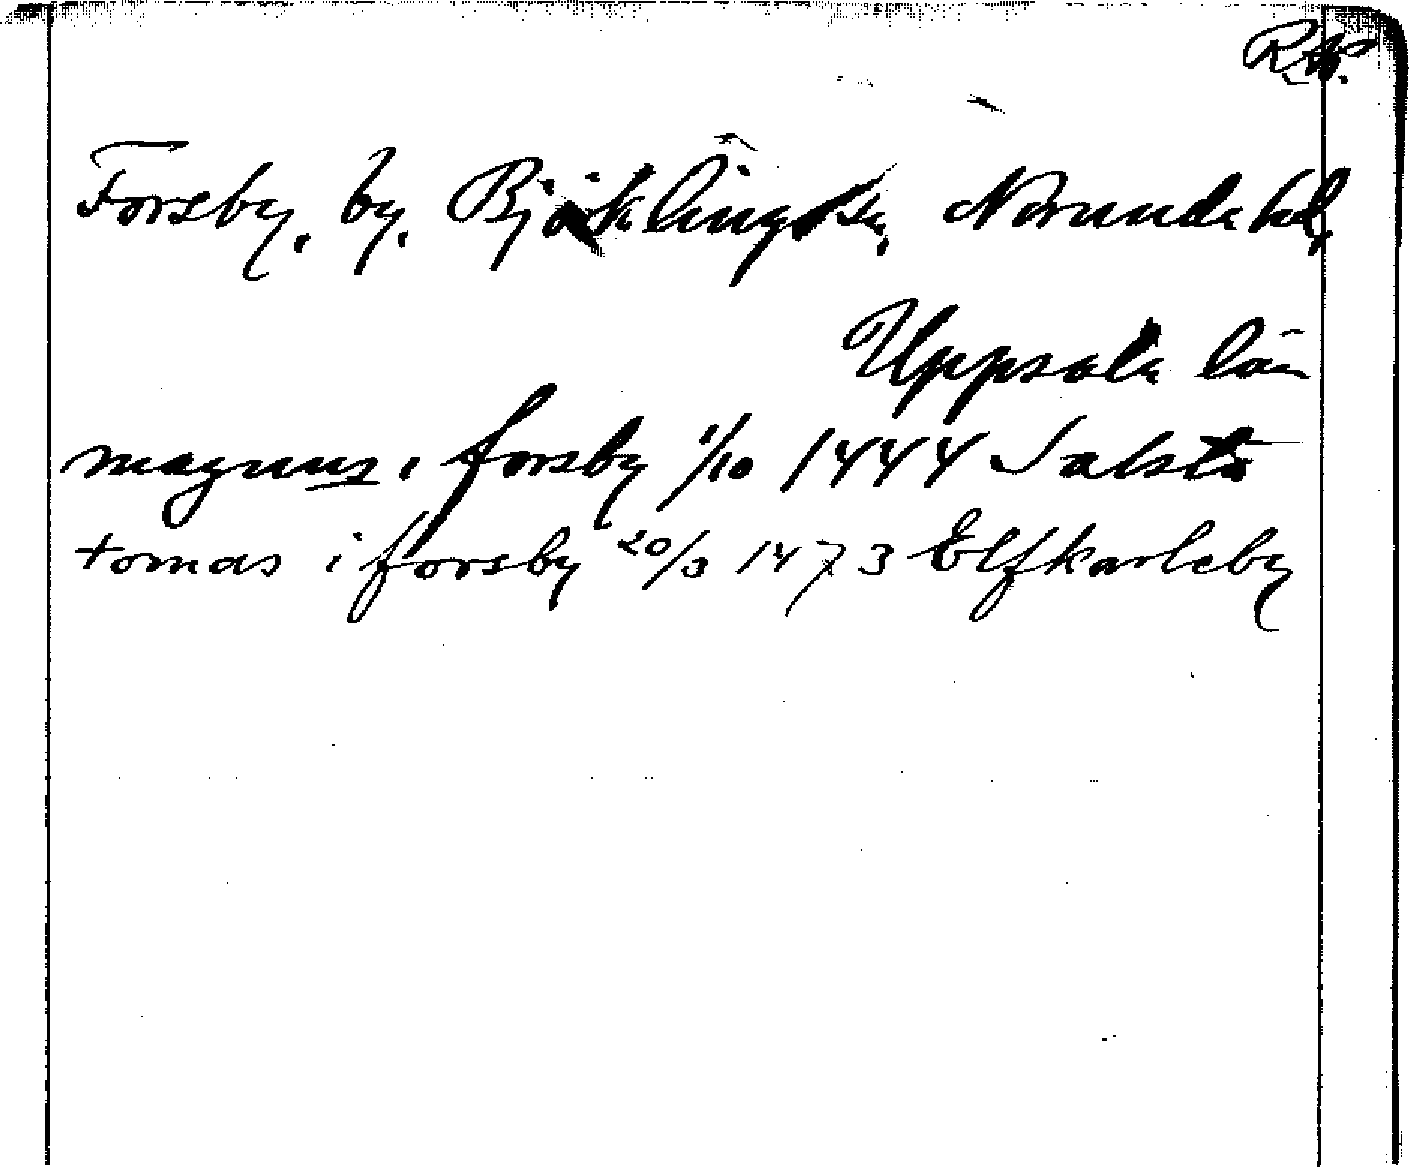 Forsby, by, Björklinge sn, Norunda hd,
Uppsala län
magnus i forsby 1/10 1444 Salsta
tomas i forsby 20/3 1473 Elfkarleby